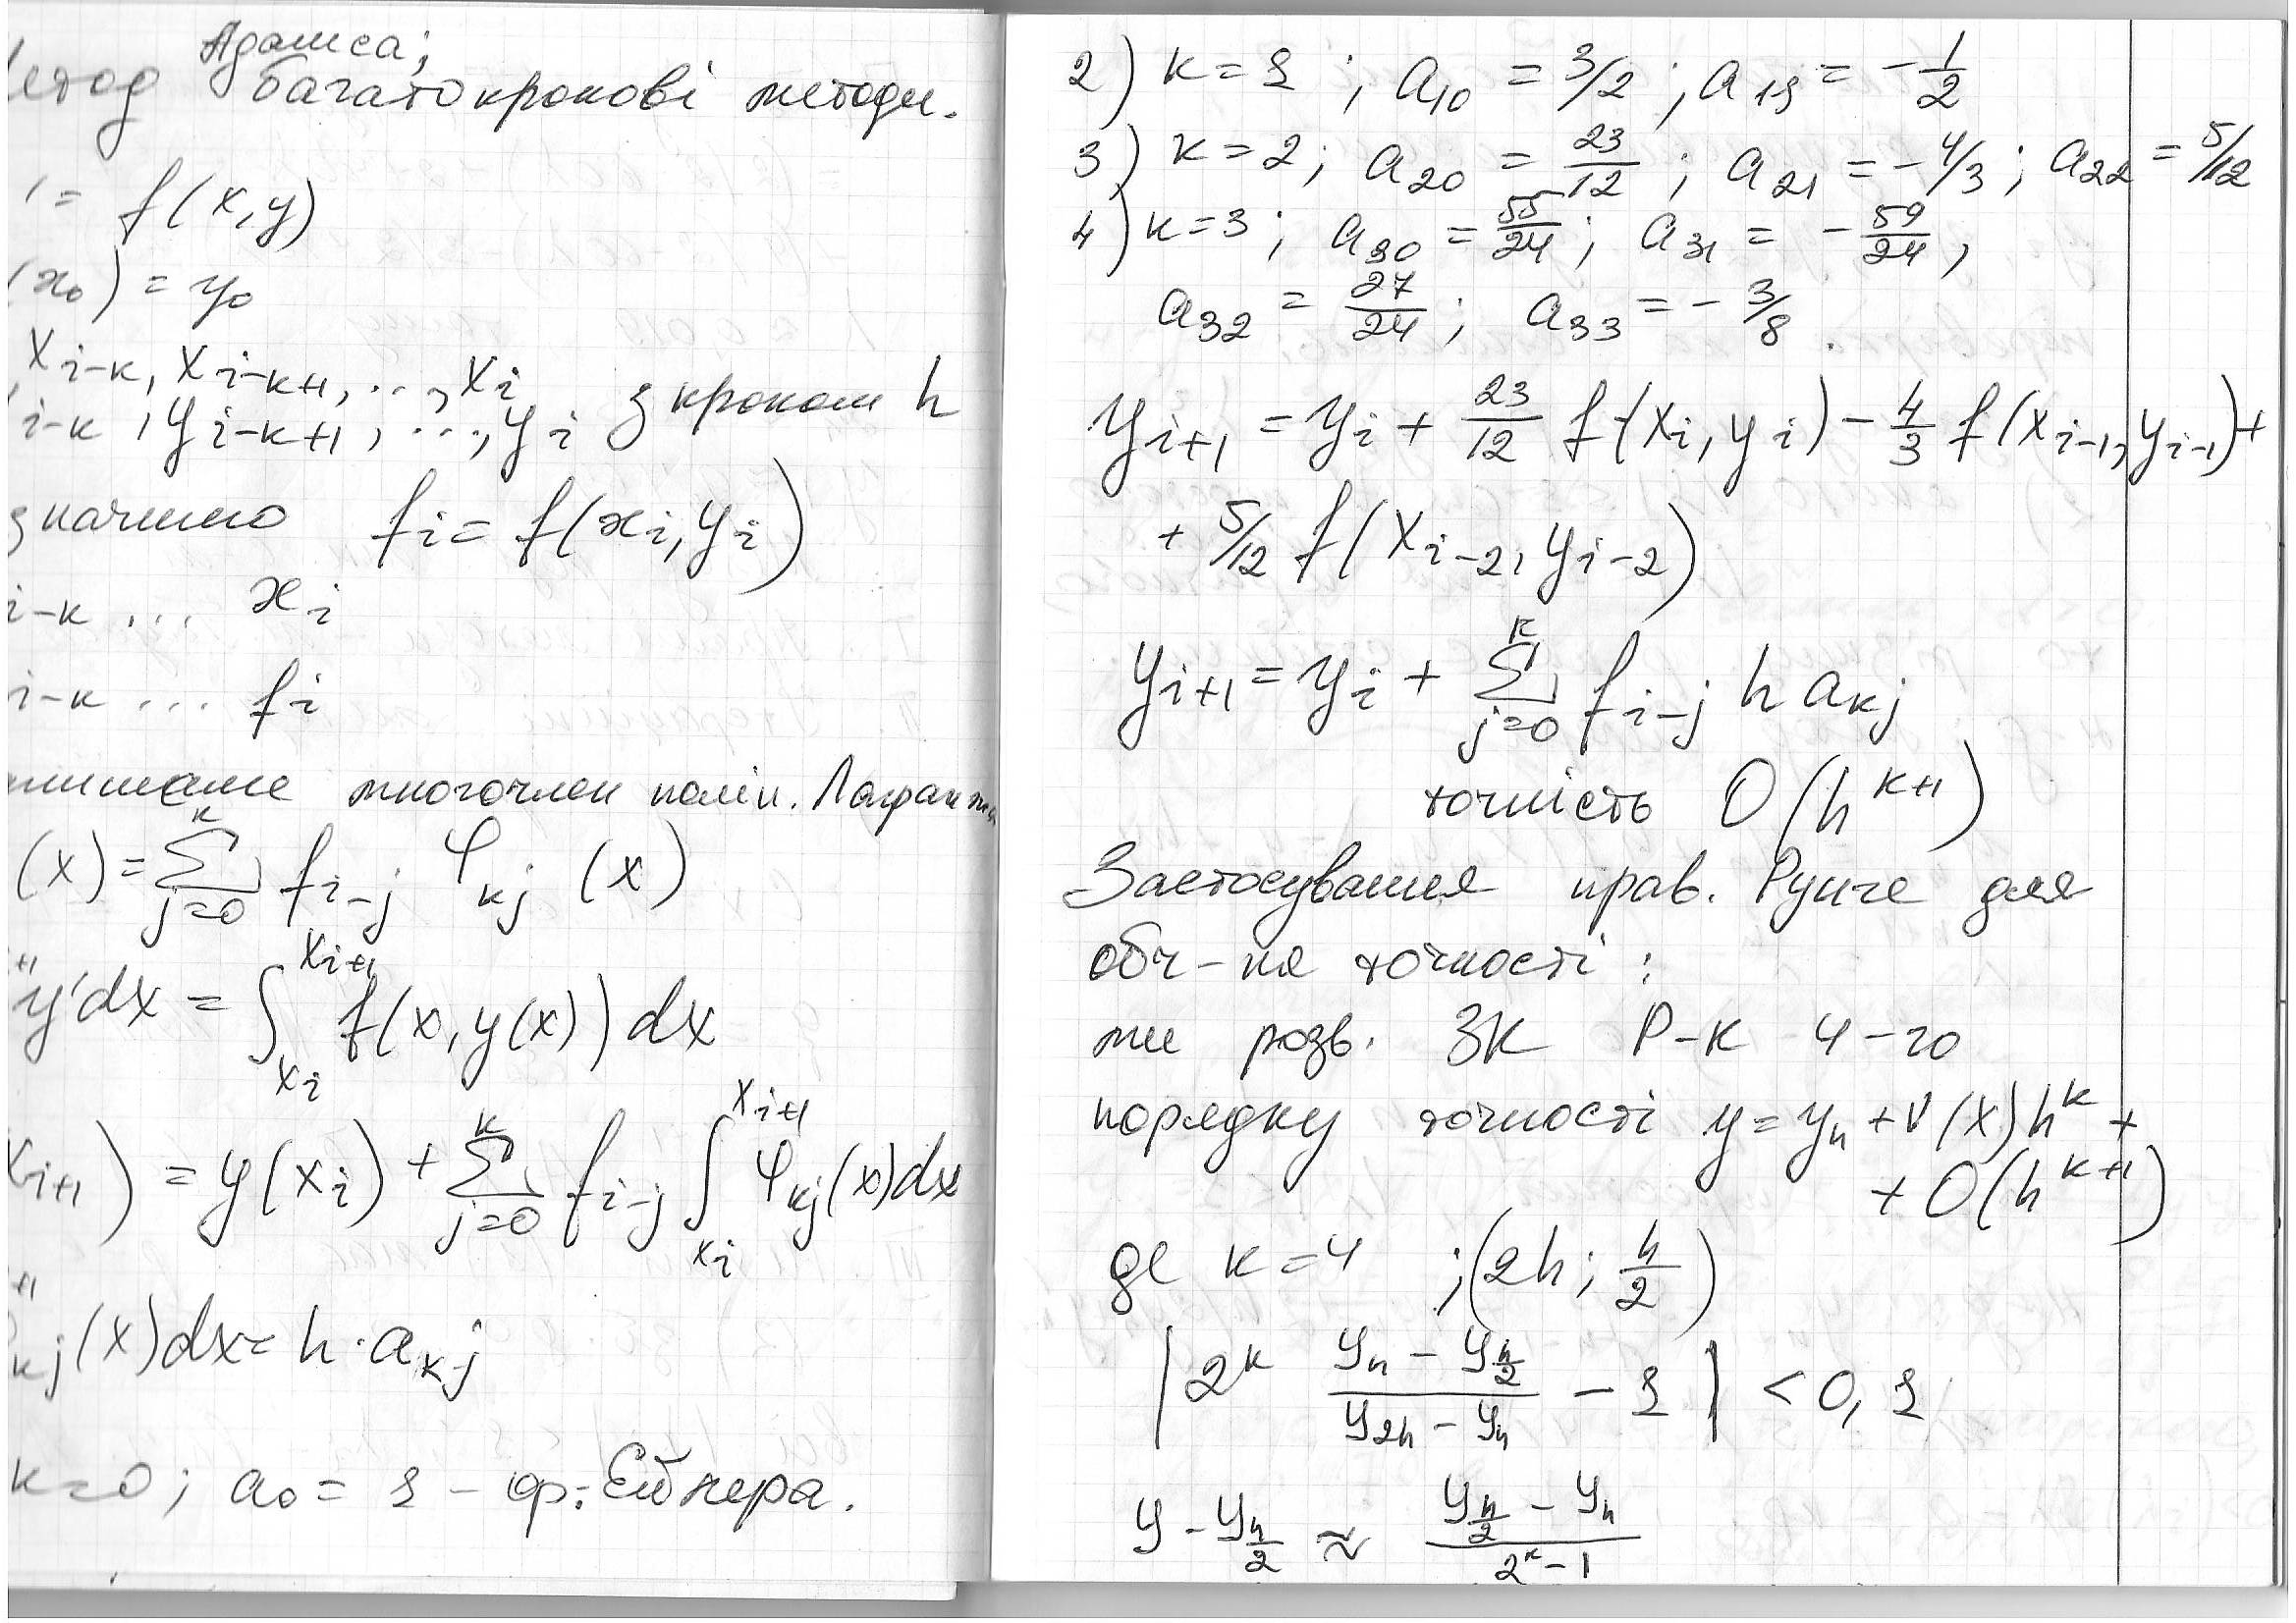 Адамса;
етод багатокрокові методи.
' = f(x,y)
(x₀) = y₀
, x_{i-k}, x_{i-k+1}, ..., x_i з кроком h
_{i-k}, y_{i-k+1}, ..., y_i
значимо f_i = f(x_i, y_i)
_{i-k} ... x_i
_{i-k} ... f_i
пишемо многочлен полін. Лагранжа
(x) = \sum_{j=0}^{k} f_{i-j} φ_{kj} (x)
^{+1} y'dx = \int_{x_i}^{x_{i+1}} f(x, y(x)) dx
x_{i+1}) = y(x_i) + \sum_{j=0}^{k} f_{i-j} \int_{x_i}^{x_{i+1}} φ_{kj}(x)dx
^{+1} _{kj}(x)dx = h · a_{kj}
k=0; a₀ = 1 - ф. Ейлера.
2) k = 1 ; a_{10} = 3/2 ; a_{11} = - \frac{1}{2}
3) k = 2; a_{20} = \frac{23}{12} ; a_{21} = - 4/3 ; a_{22} = 5/12
4) k = 3 ; a_{30} = \frac{55}{24} ; a_{31} = - \frac{59}{24} ,
a_{32} = \frac{27}{24} ; a_{33} = - 3/8 .
y_{i+1} = y_i + \frac{23}{12} f(x_i, y_i) - \frac{4}{3} f(x_{i-1}, y_{i-1}) +
+ 5/12 f(x_{i-2}, y_{i-2})
y_{i+1} = y_i + \sum_{j=0}^{k} f_{i-j} h a_{kj}
точність O(h^{k+1})
Застосування прав. Рунге для
обч-ня точності :
ми розв. ЗК Р-К 4-го
порядку точності y = y_h + V(x)h^k +
+ O(h^{k+1})
де k = 4 ; (2h ; \frac{h}{2})
| 2^k \frac{y_h - y_{\frac{h}{2}}}{y_{2h} - y_h} - 1 | < 0,1
y - y_{\frac{h}{2}} ≈ \frac{y_{\frac{h}{2}} - y_h}{2^k - 1}